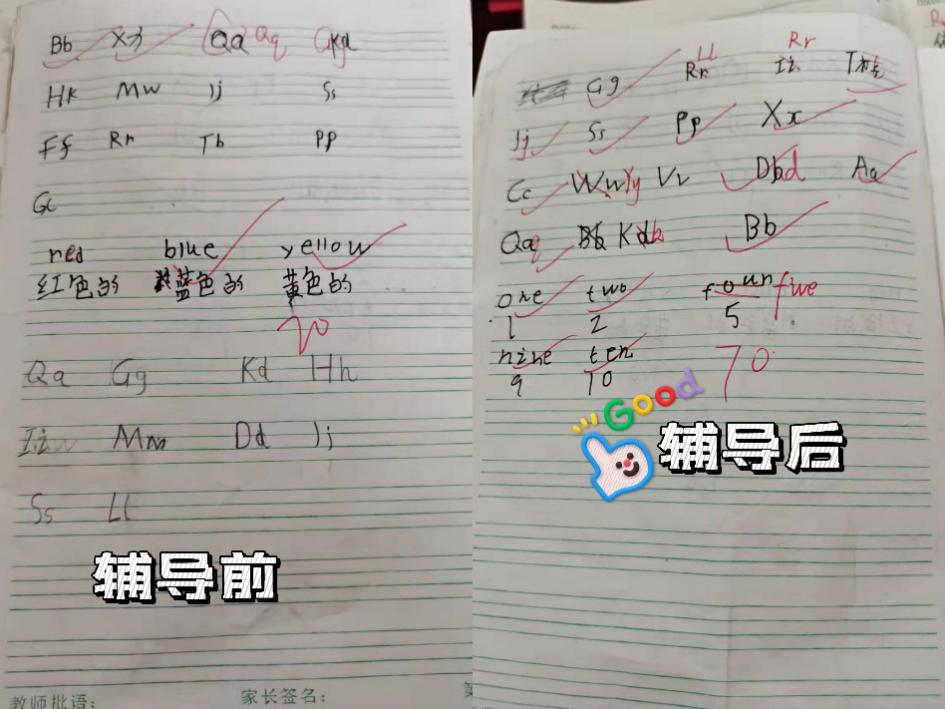 Bb Qa Qq
Hk Mw Ij Ss
Ff Rr Tb Pp
red blue yellow
红色的 蓝色的 黄色的
20
Qa Gg Kd Hh
Mm Dd Ij
Ss Ll
辅导前
教师批语: 家长签名:
Ll Rr
Gg Rr
Ij Ss Pp Xx
Cc Ww Yy Vv Db d Aa
Qa q Bb Kd k Bb
one two foun five
1 2 5
nine ten
9 10
70
Good
辅导后